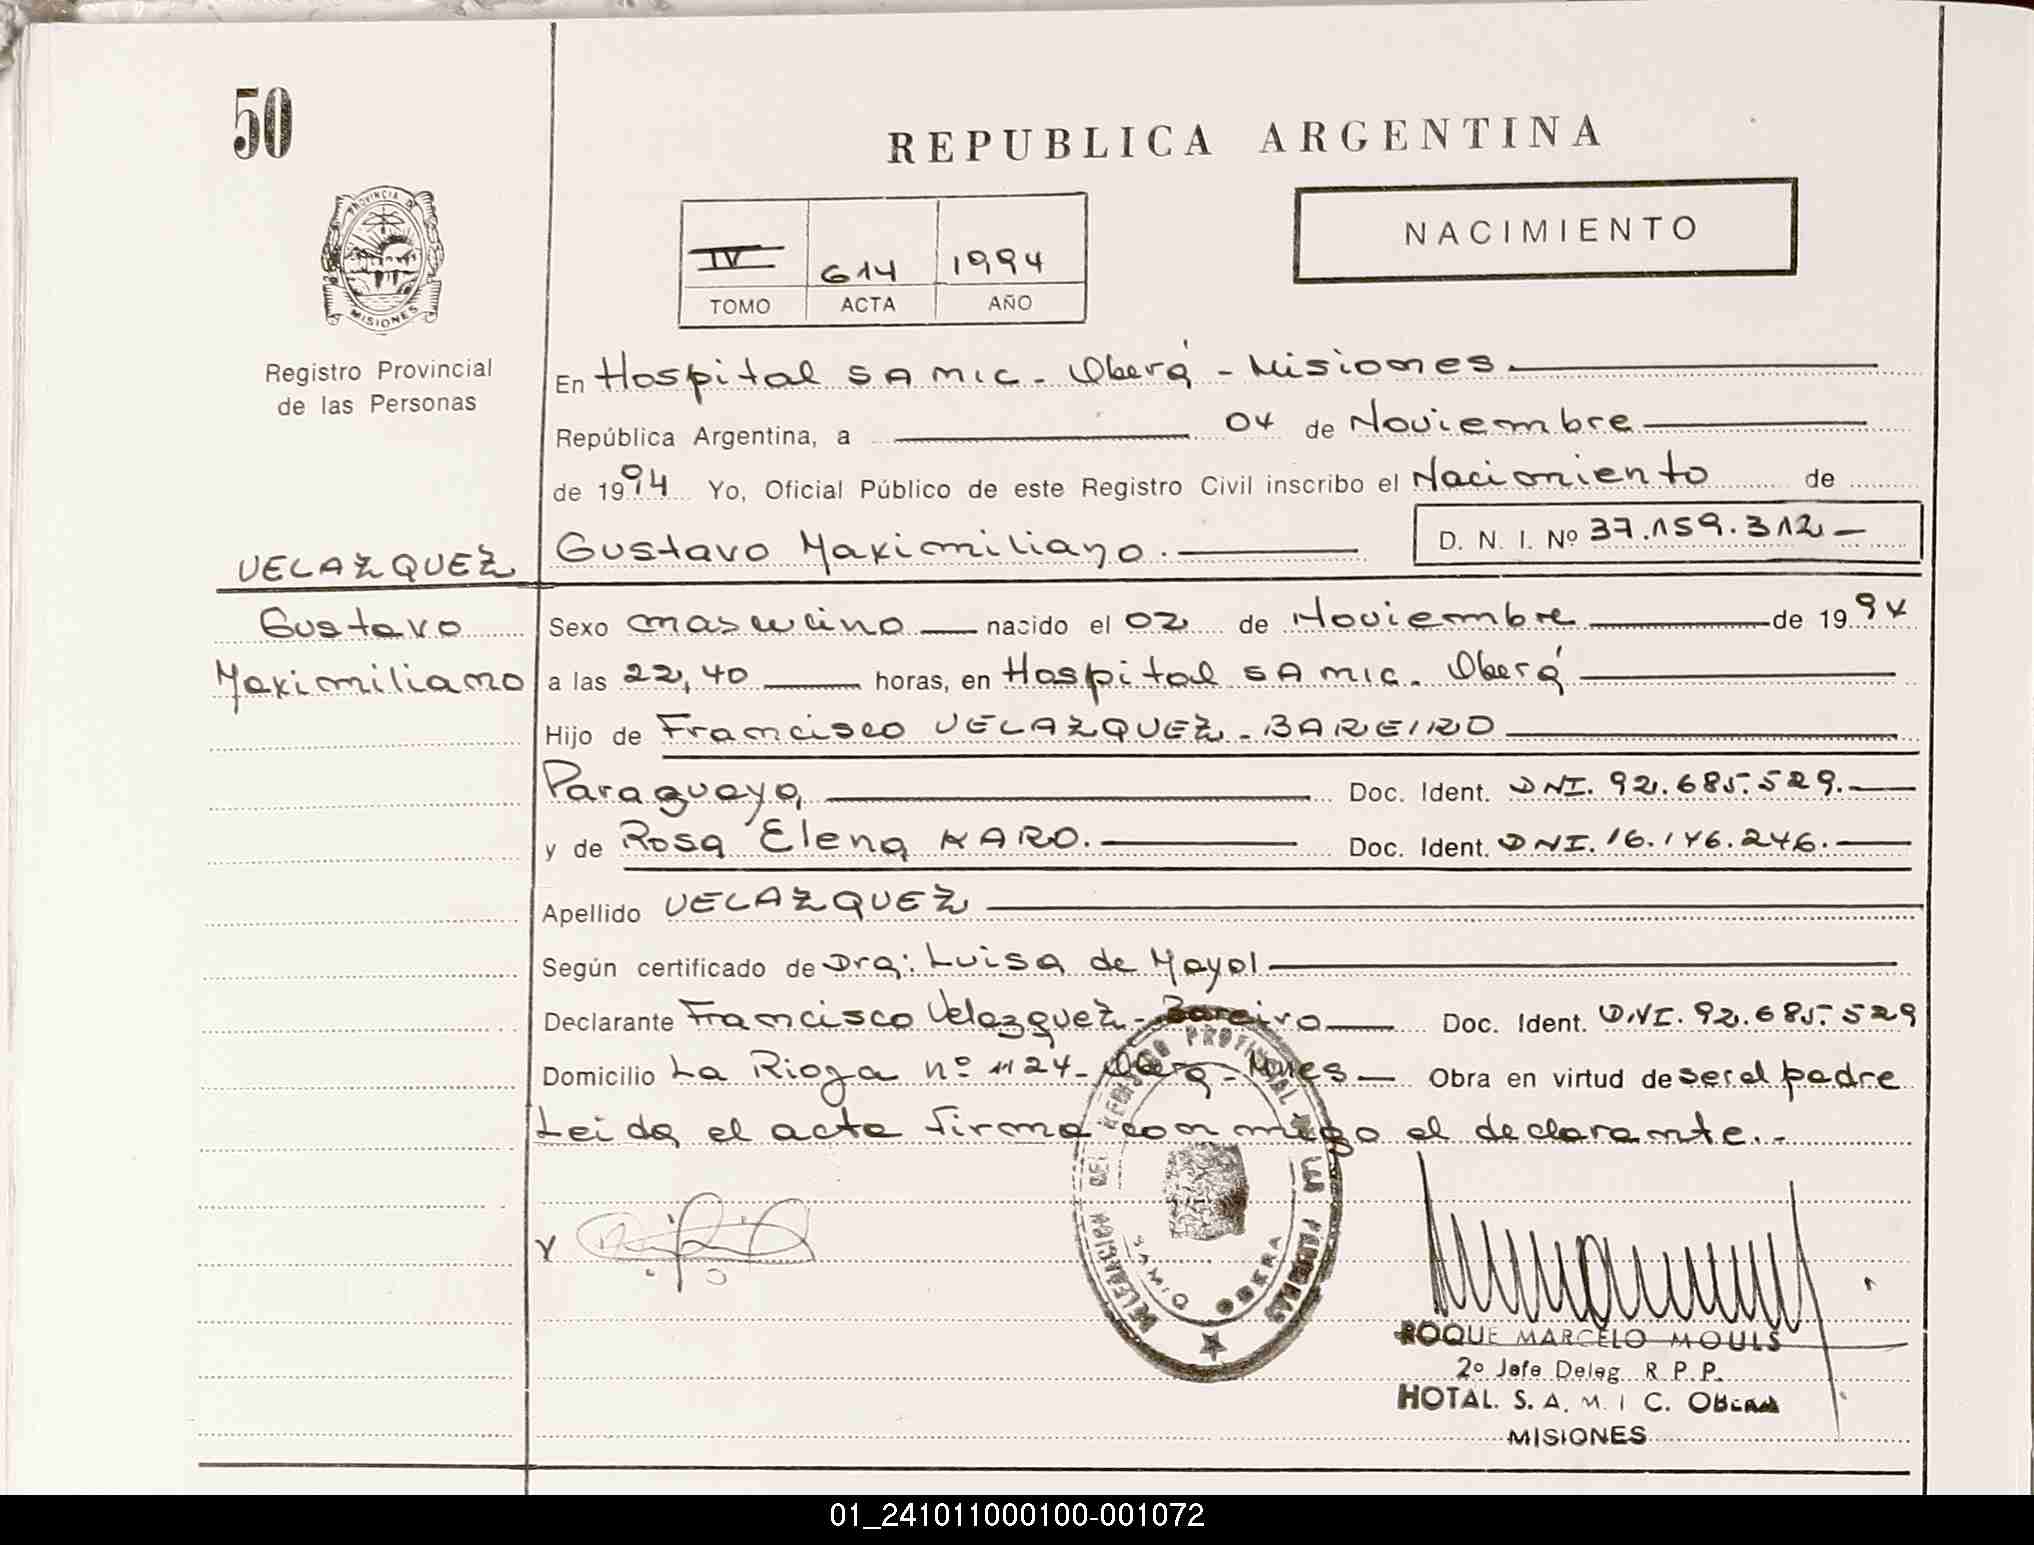 50
REPUBLICA ARGENTINA
PROVINCIA DE
MISIONES
NACIMIENTO
IV 614 1994
TOMO ACTA AÑO
Registro Provincial
de las Personas
En Hospital SAMIC - Oberá - Misiones
República Argentina, a 04 de Noviembre
de 1994 Yo, Oficial Público de este Registro Civil inscribo el Nacimiento de
Gustavo Maximiliano. D. N. I. Nº 37.159.312-
VELAZQUEZ
Gustavo
Maximiliano
Sexo masculino nacido el 02 de Noviembre de 1994
a las 22,40 horas, en Hospital SAMIC. Oberá
Hijo de Francisco VELAZQUEZ - BAREIRO
Paraguaya Doc. Ident. DNI. 92.685.529.
y de Rosa Elena KARO. Doc. Ident. DNI. 16.146.246.
Apellido VELAZQUEZ
Según certificado de Dra: Luisa de Mayol
Declarante Francisco Velazquez - Bareiro Doc. Ident. DNI. 92.685.529
Domicilio La Rioja nº 1124 - Oberá - Mnes Obra en virtud de ser el padre
Leida el acta firma conmigo el declarante.-
DELEGACION DEL REGISTRO PROVINCIAL DE LAS PERSONAS
SAMIC OBERA
ROQUE MARCELO MOULS
2º Jefe Deleg. R. P. P.
HOTAL. S. A. M. I C. OBERA
MISIONES
01_241011000100-001072